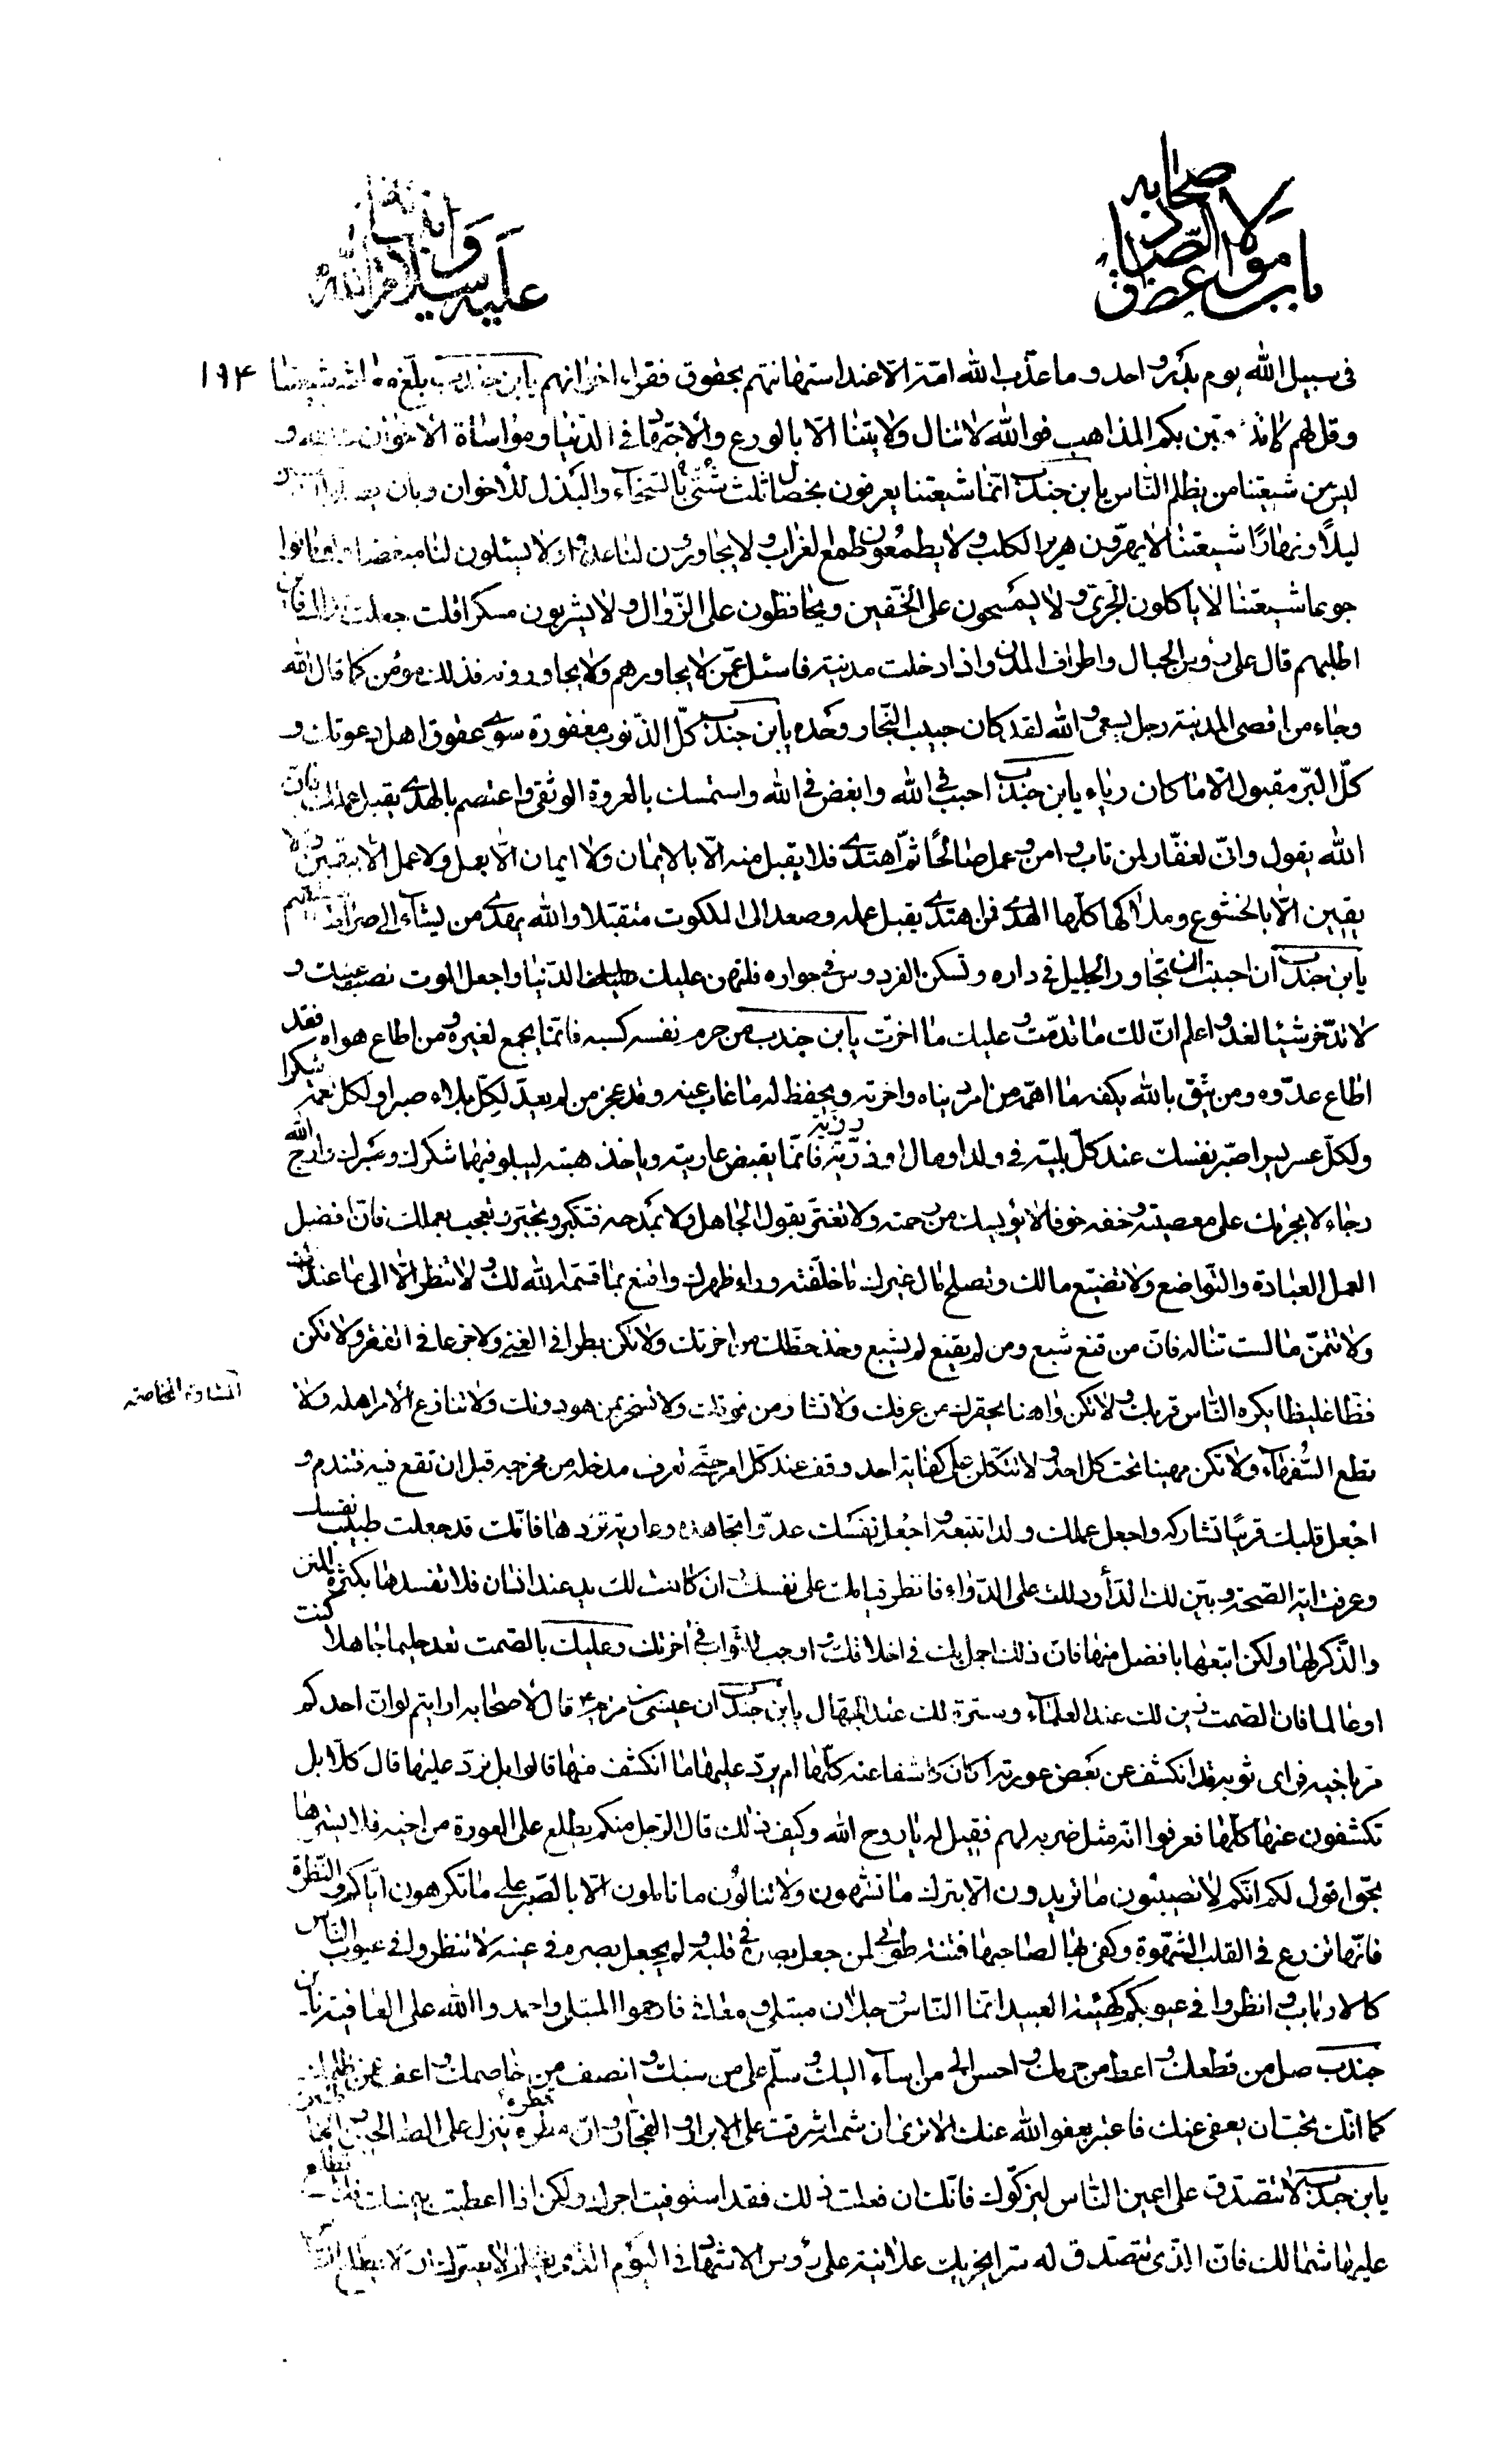 باب مواعظ مولانا الصادق
عليه سلام الله
في سبيل الله يوم بدر و احد و ما عذّب الله امّة الّا عند استهانتهم بحقوق فقراء اخوانهم يابن جندب بلّغ معاشر شيعتنا ١٩۴
و قل لهم لا تذهبنّ بكم المذاهب فوالله لا تنال ولايتنا الّا بالورع و الاجتهاد في الدّنيا و مواساة الاخوان في الله و
ليس من شيعتنا من يظلم النّاس يابن جندب انّما شيعتنا يعرفون بخصال ثلث شتّى بالسّخاء و البذل للأخوان و بان يصلّوا
ليلًا و نهارًا شيعتنا لا يهرّون هرير الكلب و لا يطمعون طمع الغراب و لا يجاورون لنا عدوّا و لا يسئلون لنا مبغضا و لو ماتوا
جوعا شيعتنا لا ياكلون الجرّي و لا يمسحون على الخفّين و يحافظون على الزّوال و لا يشربون مسكرا قلت جعلت فداك فاين
اطلبهم قال على رؤس الجبال و اطراف المدن و اذا دخلت مدينة فاسئل عمّن لا يجاورهم و لا يجاورونه فذلك مؤمن كما قال الله
و جاء من اقصى المدينة رجل يسعى و الله لقد كان حبيب النّجار وحده يابن جندب كلّ الذّنوب مغفورة سوى عقوق اهل دعوتك و
كلّ البرّ مقبول الّا ما كان رياء يابن جندب احبب في الله و ابغض في الله و استمسك بالعروة الوثقى و اعتصم بالهدى يقبل عملك فانّ
الله يقول و انّي لغفّار لمن تاب و امن و عمل صالحًا ثمّ اهتدى فلا يقبل منه الّا بالايمان و لا ايمان الّا بعمل و لا عمل الّا بيقين و لا
يقين الّا بالخشوع و ملاكها كلّها الهدى فمن اهتدى يقبل عمله و صعد الى الملكوت متقبّلا و الله يهدي من يشآء الى صراط مستقيم
يابن جندب ان احببت ان تجاور الجليل في داره و تسكن الفردوس في جواره فلتهن عليك الدّنيا و اجعل الموت نصب عينك و
لا تدّخر شيئا لغد و اعلم انّ لك ما قدّمت و عليك ما اخّرت يابن جندب من حرم نفسه كسبه فانّما يجمع لغيره و من اطاع هواه فقد
اطاع عدوّه و من يثق بالله يكفه ما اهمّه من امر دنياه و اخرته و يحفظ له ما غاب عنه و قد عجز من لم يعدّ لكلّ بلاء صبرا و لكل نعمة شكرا
و لكلّ عسر يسرا صبّر نفسك عند كلّ بليّة في ولد او مال او رزيّة فانّما يقبض عاريته و ياخذ هبته ليبلو فيهما شكرك و صبرك و ارج الله
رجاء لا يجرّيك على معصيته و خفه خوفا لا يؤيسك من رحمته و لا تغترّ بقول الجاهل و لا بمدحه فتكبّر و تجبّر و تعجب بعملك فانّ افضل
العمل العبادة و التّواضع و لا تضيّع مالك و تصلح مال غيرك ما خلّفته وراء ظهرك و اقنع بما قسمه الله لك و لا تنظر الّا الى ما عندك
و لا تتمنّ ما لست تناله فانّ من قنع شبع و من لم يقنع لم يشبع و خذ حظّك من اخرتك و لا تكن بطرا في الغنى و لا جزعا في الفقر و لا تكن
فظّا غليظا يكره النّاس قربك و لا تكن واهنا يحقّرك من عرفك و لا تشارّ من فوقك و لا تسخر بمن هو دونك و لا تنازع الأمر اهله و لا
المشارة المخاصمة
تطع السّفهآء و لا تكن مهينا تحت كل احد و لا تتّكلنّ على كفاية احد و قف عند كلّ امر حتّى تعرف مدخله من مخرجه قبل ان تقع فيه فتندم و
اجعل قلبك قريبًا تشاركه و اجعل عملك والدا تتبعه و اجعل نفسك عدوّا تجاهده و عارية تردّها فانّك قد جعلت طبيب نفسك
و عرفت اية الصّحة و بيّن لك الدّاء و دللت على الدّواء فانظر قيامك على نفسك و ان كانت لك يد عند انسان فلا تفسدها بكثرة المنن
و الذّكر لها و لكن اتبعها بافضل منها فانّ ذلك اجمل بك في اخلاقك و اوجب للثّواب في اخرتك و عليك بالصّمت تعد حليما جاهلا كنت
او عالما فان الصّمت زين لك عند العلمآء و سترة لك عند الجهّال يابن جندب ان عيسى بن مريم ع قال لاصحابه ارايتم لو انّ احدكم
مرّ باخيه فراى ثوبه قد انكشف عن بعض عورته اكان كاشفا عنه كلّها ام يردّ عليها ما انكشف منها قالوا بل نردّ عليها قال كلّا بل
تكشفون عنها كلّها فعرفوا انّه مثل ضربه لهم فقيل له يا روح الله و كيف ذلك قال الرّجل منكم يطّلع على العورة من اخيه فلا يسترها
بحقّ اقول لكم انّكم لا تصيبون ما تريدون الّا بترك ما تشتهون و لا تنالون ما تاملون الّا بالصّبر على ما تكرهون ايّاكم و النّظرة
فانّها تزرع في القلب الشّهوة و كفى بها لصاحبها فتنة طوبى لمن جعل بصره في قلبه و لم يجعل بصره في عينه لا تنظروا في عيوب الناس
كالارباب و انظروا في عيوبكم كهيئة العبيد انّما النّاس رجلان مبتلى و معافى فارحموا المبتلى و احمدوا الله على العافية يابن
جندب صل من قطعك و اعط من حرمك و احسن الى من اسآء اليك و سلّم على من سبّك و انصف من خاصمك و اعف عمّن ظلمك
كما انّك تحبّ ان يعفى عنك فاعتبر بعفو الله عنك الا ترى ان شمسه اشرقت على الابرار و الفجّار و انّ مطره ينزل على الصّالحين
يابن جندب لا تتصدّق على اعين النّاس ليزكّوك فانّك ان فعلت ذلك فقد استوفيت اجرك و لكن اذا اعطيت بيمينك فلا تطلع
عليها شمالك فانّ الّذي تتصدّق له سرّا يجزيك علانية على رؤس الاشهاد في اليوم الّذي